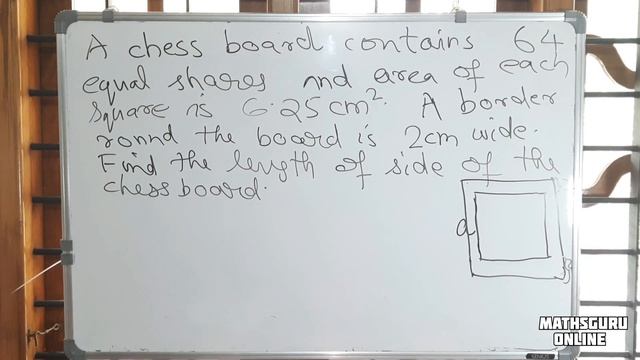 A chess board contains 64
equal shares and area of each
square is 6.25 cm². A border
round the board is 2cm wide.
Find the length of side of the
chess board.
a
MATHSGURU
ONLINE